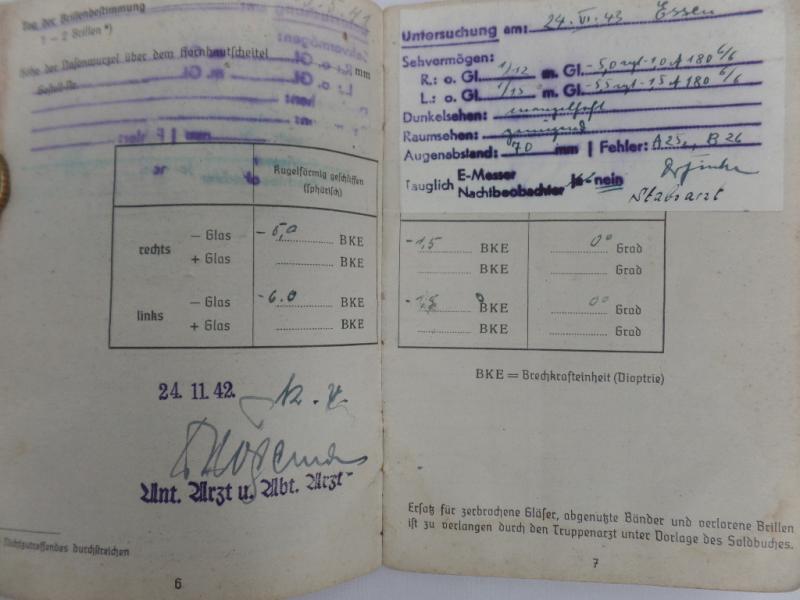 Tag der Brillenbestimmung
1 – 2 Brillen *)
Höhe der Nasenwurzel über dem Hornhautscheitel mm
Kugelförmig geschliffen
(sphärisch)
rechts – Glas - 5,0 BKE
+ Glas BKE
links – Glas -6.0 BKE
+ Glas BKE
24. 11. 42.
Unt. Arzt u. Abt. Arzt
Nichtzutreffendes durchstreichen
6
Untersuchung am: 24. VI. 43 Essen
Sehvermögen:
R.: o. Gl. 1/12 m. Gl. -5,0 cyl -1,0 A 180 6/6
L.: o. Gl. 1/15 m. Gl. -5,5 cyl -1,5 A 180 6/6
Dunkelsehen: mangelhaft
Raumsehen: genügend
Augenabstand: 70 mm | Fehler: A 25, B 26
Tauglich E-Messer
Nachtbeobachter ja nein
Stabsarzt
-1,5 BKE 0° Grad
BKE Grad
BKE 0° Grad
BKE Grad
BKE = Brechkrafteinheit (Dioptrie)
Ersatz für zerbrochene Gläser, abgenutzte Bänder und verlorene Brillen
ist zu verlangen durch den Truppenarzt unter Vorlage des Soldbuches.
7